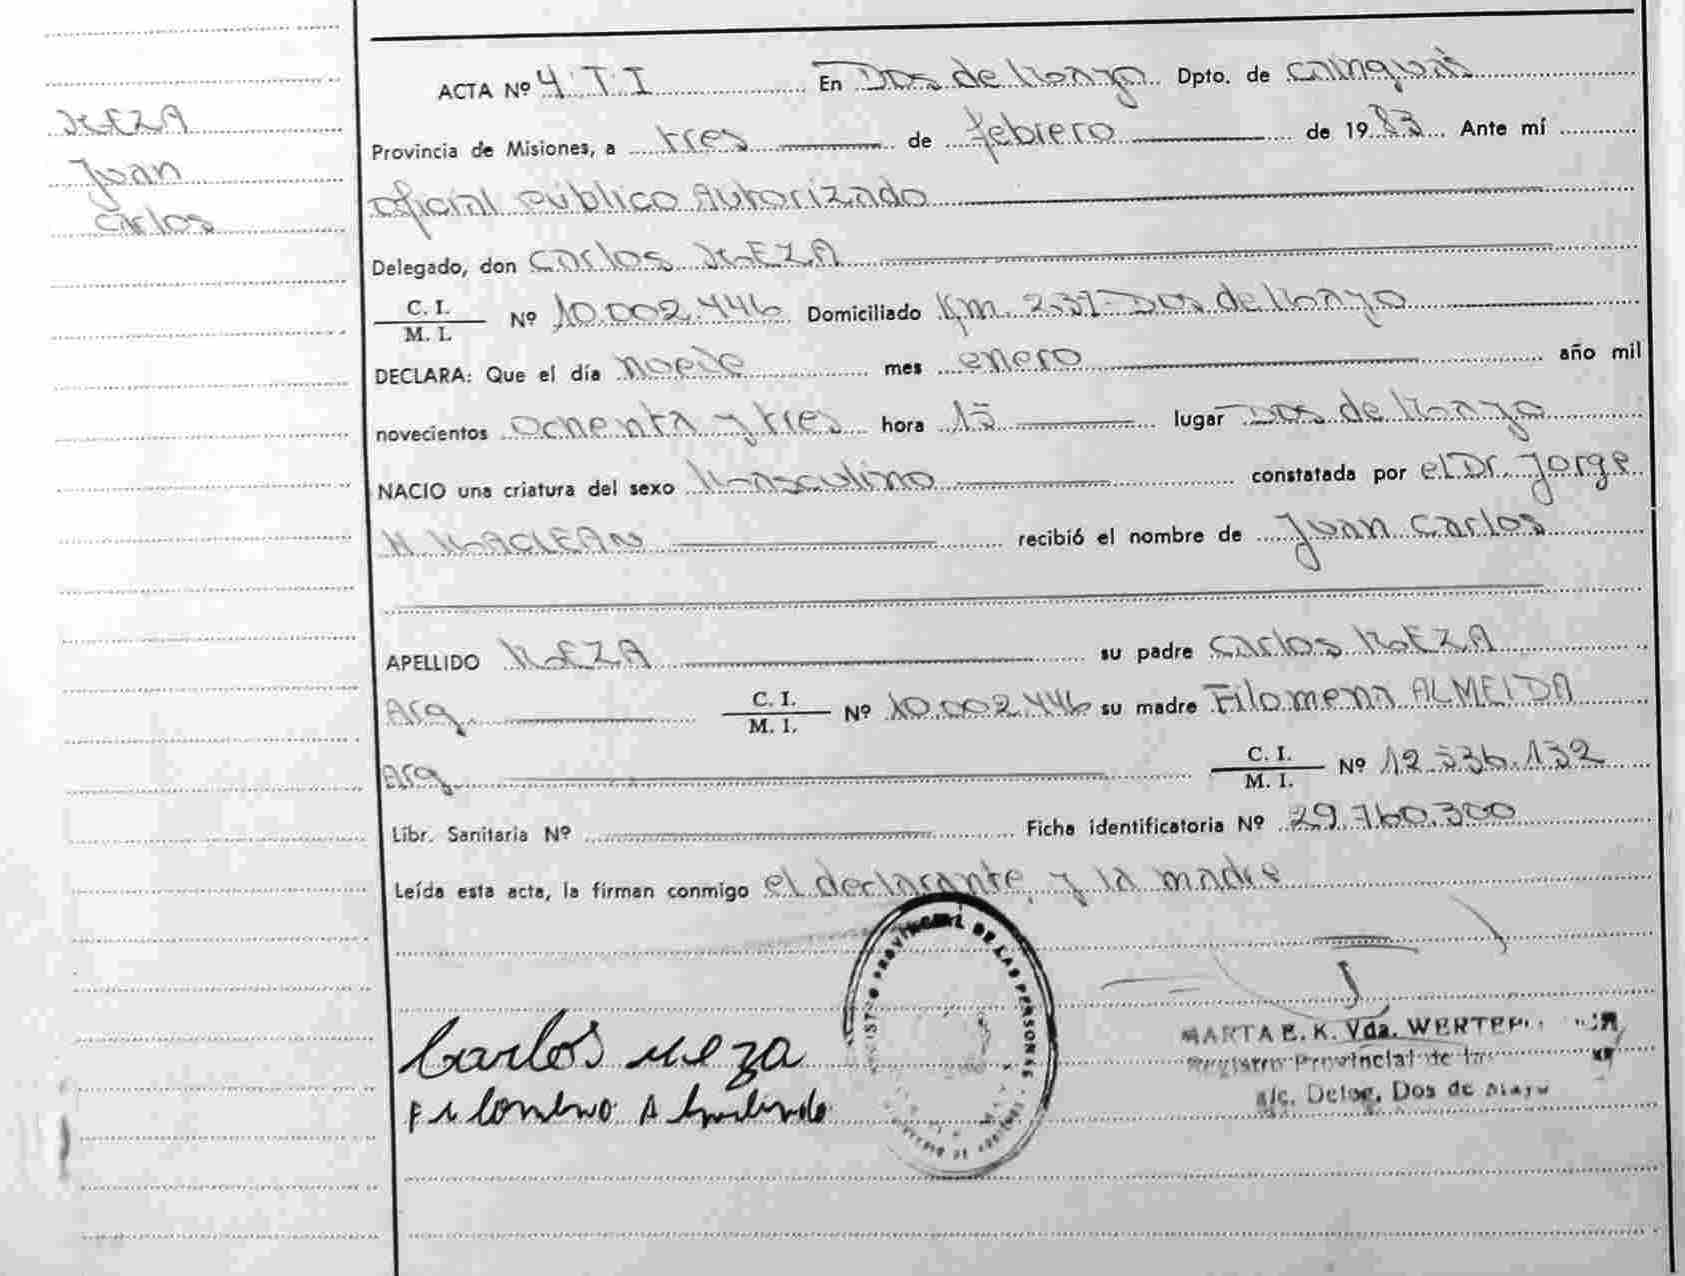 MEZA
Juan
Carlos
ACTA Nº 4. T. I En Dos de Mayo Dpto. de Cainguás
Provincia de Misiones, a tres de febrero de 1983 Ante mí
Oficial Público Autorizado
Delegado, don Carlos MEZA
C. I.
M. I. Nº 10.002.446 Domiciliado Km. 237-Dos de Mayo
DECLARA: Que el día nueve mes enero año mil
novecientos Ochenta y tres hora 15 lugar Dos de Mayo
NACIO una criatura del sexo Masculino constatada por el Dr. Jorge
MACLEAN recibió el nombre de Juan Carlos
APELLIDO MEZA su padre Carlos MEZA
Arg. C. I. M. I. Nº 10.002.446 su madre Filomena ALMEIDA
Arg. C. I. M. I. Nº 12.536.132
Libr. Sanitaria Nº Ficha identificatoria Nº 29.760.300
Leída esta acta, la firman conmigo el declarante y la madre
Carlos Meza
PROVINCIAL DE LAS PERSONAS
MARTA E. K. Vda.
Registro Provincial de las
a/c. Deleg. Dos de Mayo